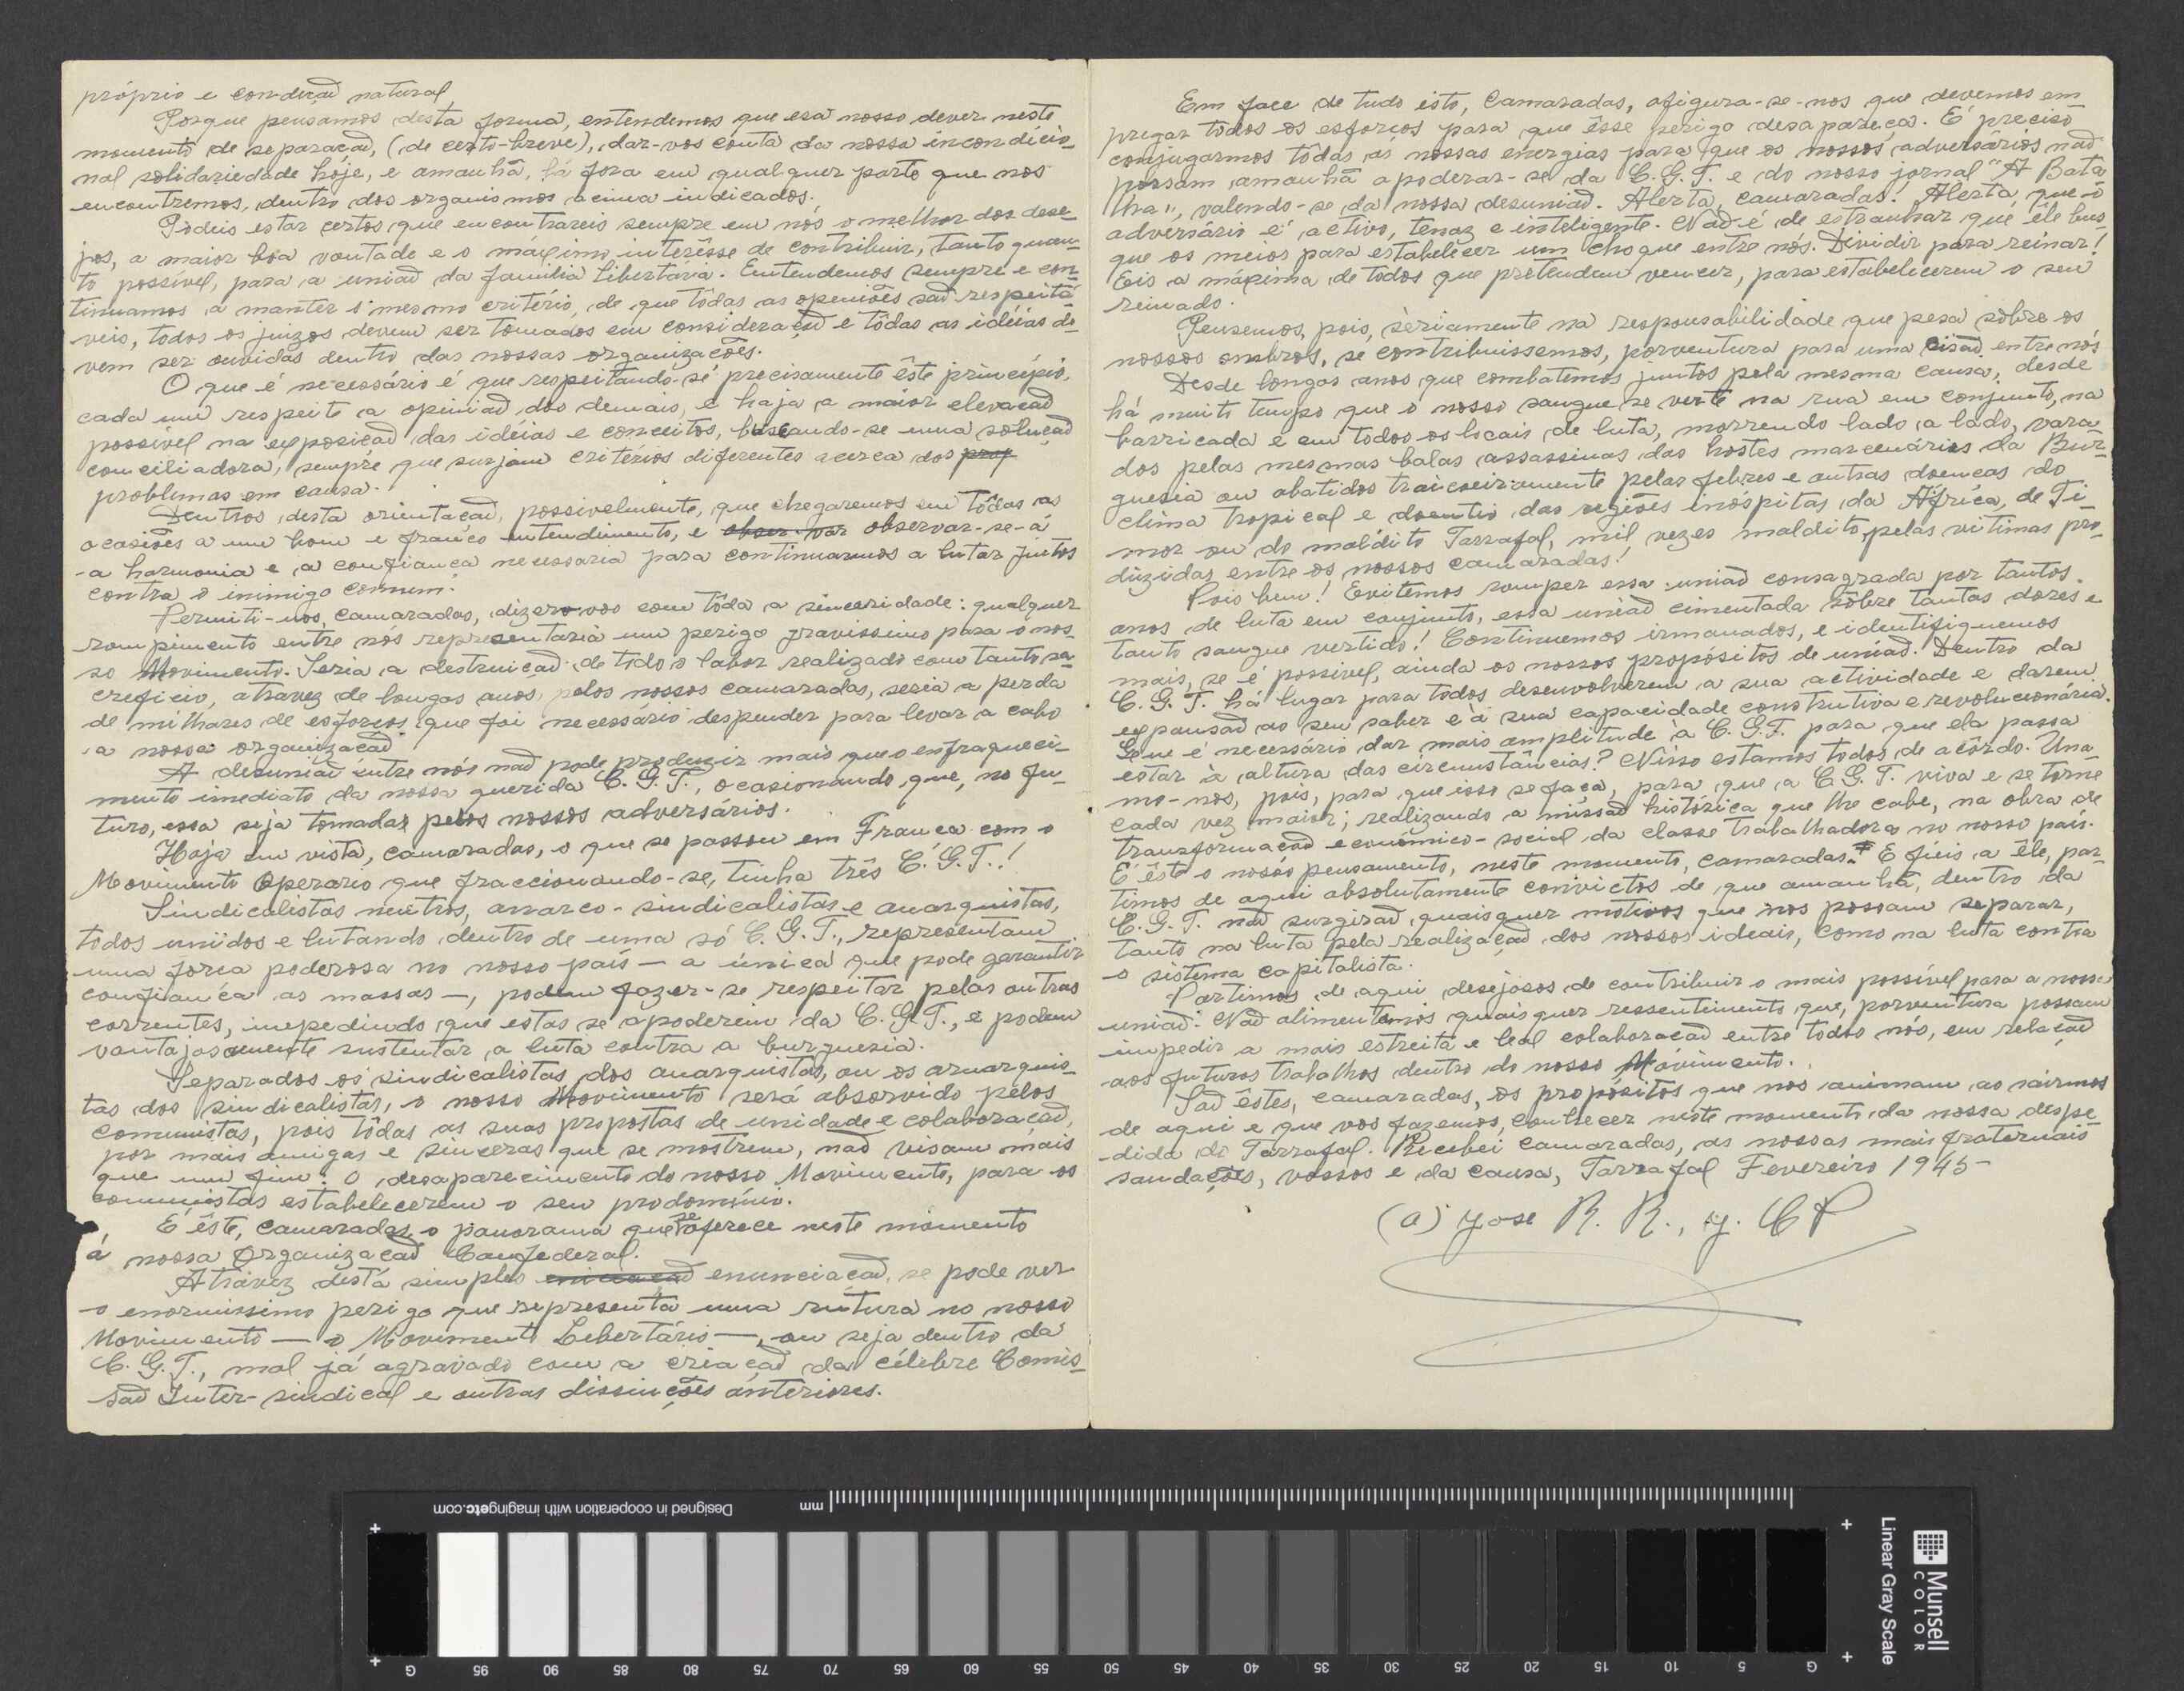 próprio e condição natural,
Porque pensamos desta forma, entendemos que era nosso dever neste
momento de separação, (de certo-breve), dar-vos conta da nossa incondicio-
nal solidariedade hoje, e amanhã, lá fora em qualquer parte que nos
encontremos, dentro dos organismos acima indicados.
Podeis estar certos que encontrareis sempre em nós o melhor dos dese-
jos, a maior boa vontade e o máximo interêsse de contribuir, tanto quan-
to possível, para a união da família Libertária. Entendemos sempre e con-
tinuamos a manter o mesmo critério, de que tôdas as openiões são respeitá-
veis, todos os juizos devem ser tomados em consideração e tôdas as idéias de-
vem ser ouvidas dentro das nossas organizações.
O que é necessário é que respeitando-se precisamente êste princípio,
cada um respeite a opinião dos demais, e haja a maior elevação
possível na exposição das idéias e conceitos, buscando-se uma solução
conciliadora, sempre que surjam critérios diferentes acerca dos prop
problemas em causa.
Dentros desta orientação, possivelmente, que chegaremos em tôdas as
ocasiões a um bom e franco entendimento, e obser var observar-se-á
-a harmonia e a confiança necessaria para continuarmos a lutar juntos
contra o inimigo comum.
Permiti-nos, camaradas, dizer-vos com tôda a sinceridade: qualquer
rompimento entre nós representaria um perigo gravíssimo para o nos-
so Movimento. Seria a destruição de todo o labor realizado com tanto sa-
crefício, atravez de longos anos, pelos nossos camaradas, seria a perda
de milhares de esforços que foi necessário despender para levar a cabo
a nossa organização.
A desunião entre nós não pode produzir mais que o enfraqueci-
mento imediato da nossa querida C. G. T., ocasionando que, no fu-
turo, essa seja tomadas pelos nossos adversários.
Haja em vista, camaradas, o que se passou em França com o
Movimento Operario que fraccionando-se, tinha três C. G. T.!
Sindicalistas neutros, anarco-sindicalistas e anarquistas,
todos unidos e lutando dentro de uma só C. G. T., representam
uma força poderosa no nosso país — a única que pode garantir
confiança as massas —, podem fazer-se respeitar pelas outras
correntes, impedindo que estas se apoderem da C. G. T., e podem
vantajosamente sustentar a luta contra a burguesia.
Separados os sindicalistas dos anarquistas, ou os anarquis-
tas dos sindicalistas, o nosso Movimento será absorvido pelos
comunistas, pois tôdas as suas propostas de unidade e colaboração,
por mais amigas e sinceras que se mostrem, não visam mais
que um fim: O desaparecimento do nosso Movimento, para os
comunistas estabelecerem o seu prodomínio.
E êste, camaradas, o panorama que se oferece neste momento
á nossa Organização Confederal.
Atravez desta simples enunciação, se pode ver
o enormissimo perigo que representa uma rutura no nosso
Movimento — o Movimento Lebertário —, ou seja dentro da
C. G. T., mal já agravado com a criação da célebre Comis-
são Inter-sindical e outras dissenções anteriores.
Em face de tudo isto, Camaradas, afigura-se-nos que devemos em
pregar todos os esforços para que êsse perigo desapareça. É preciso
conjugarmos tôdas as nossas energias para que os nossos adversários não
possam amanhã apoderar-se da C. G. T. e do nosso jornal "A Bata
lha", valendo-se da nossa desunião. Alerta, camaradas! Alerta, que o
adversário é activo, tenaz e inteligente. Não é de estranhar que êle bus-
que os meios para estabelecer um choque entre nós. Dividir para reinar!
Eis a máxima de todos que pretendem vencer, para estabelecerem o seu
reinado.
Pensemos, pois, sèriamente na responsabilidade que pesa sôbre os
nossos ombros, se contribuissemos, porventura para uma cisão entre nós
Desde longos anos que combatemos juntos pela mesma causa, desde
há muito tempo que o nosso sangue se verte na rua em conjunto, na
barricada e em todos os locais de luta, morrendo lado a lado, vara-
dos pelas mesmas balas assassinas das hostes marcenárias da Bur-
guesia ou abatidos traiçoeiramente pelas febres e outras doenças do
clima tropical e doentio das regiões inóspitas da África, de Ti-
mor ou do maldito Tarrafal, mil vezes maldito, pelas vitimas pro-
duzidas entre os nossos camaradas!
Pois bem! Evitemos romper essa união consagrada por tantos
anos de luta em conjunto, essa união cimentada sôbre tantas dores e
tanto sangue vertido! Continuemos irmanados, e identifiquemos
mais, se é possivel, ainda os nossos propósitos de união. Dentro da
C. G. T. há lugar para todos desenvolverem a sua actividade e darem
expansão ao seu saber e à sua capacidade construtiva e revolucionária.
Que é necessário dar mais amplitude à C. G. T. para que ela passa
estar à altura das circunstâncias? Nisso estamos todos de acôrdo. Una-
mo-nos, pois, para que isso se faça, para que a C. G. T. viva e se torne
cada vez maior; realizando a missão histórica que lhe cabe, na obra de
transformação económico-social da classe trabalhadora no nosso país.
É êste o nosso pensamento, neste momento, camaradas. E fiéis a êle, par-
timos de aqui absolutamente convictos de que amanhã, dentro da
C. G. T. não surgirão quaisquer motivos que nos possam separar,
tanto na luta pela realização dos nossos ideais, como na luta contra
o sistema capitalista.
Partimos de aqui desejosos de contribuir o mais possível para a nossa
união. Não alimentemos quaisquer ressentimento, que, porventura possam
impedir a mais estreita e leal colaboração entre todos nós, em relação
aos futuros trabalhos dentro do nosso Movimento.
São êstes, camaradas, os propósitos que nos animam ao sairmos
de aqui e que vos fazemos, conhecer neste momento da nossa despe-
dida do Tarrafal. Recebei camaradas, as nossas mais fraternais
saudações, vossos e da causa, Tarrafal Fevereiro 1945-
(a) Jose R. R., J. C P
Designed in cooperation with imagingetc.com
mm
G 95 90 85 80 75 70 65 60 55 50 45 40 35 30 25 20 15 10 5 G
Munsell
COLOR
Linear Gray Scale